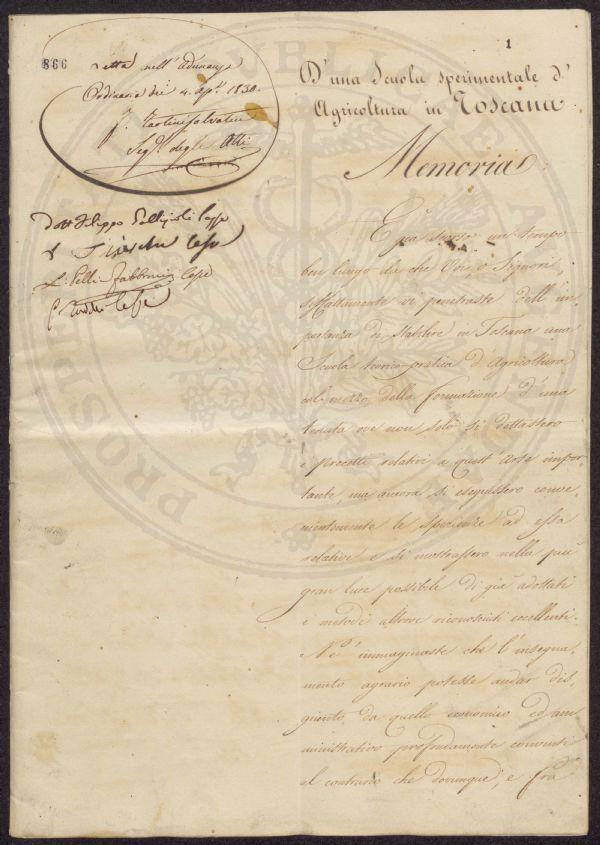 866
Letta nell'Adunanza
Ordinaria dei 4. Ap.e 1830.
Seg.o degli Atti
1
D'una Scuola sperimentale d'
Agricoltura in Toscana
Memoria
E già scorso un tempo
ben lungo da che Voi, o Signori,
esattamente vi penetraste dell'im
portanza di stabilire in Toscana una
Scuola teorico-pratica d'Agricoltura
col mezzo della formazione d'una
tenuta ove non solo si dettassero
i precetti relativi a quest'Arte impor-
tante, ma ancora si eseguissero conve
nientemente le sperienze ad essa
relative e si mostrassero nella più
gran luce possibile di già adottati
i metodi altrove riconosciuti eccellenti.
Nè immaginaste che l'insegna
mento agrario potesse andar dis
giunto da quello economico ed am
ministrativo profondamente convinti
al contrario che dovunque, e fra